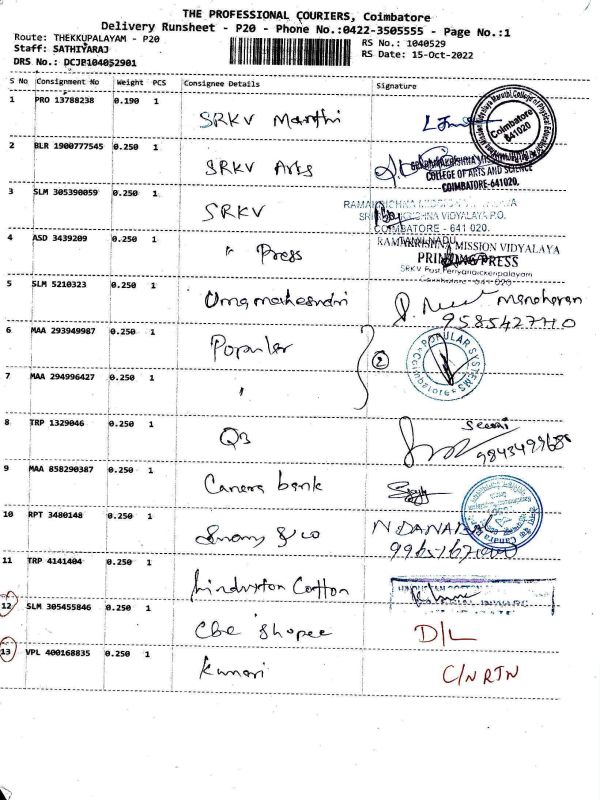 THE PROFESSIONAL COURIERS, Coimbatore
Delivery Runsheet - P20 - Phone No.:0422-3505555 - Page No.:1
Route: THEKKUPALAYAM - P20
RS No.: 1040529
Staff: SATHIYARAJ
RS Date: 15-Oct-2022
DRS No.: DCJP104052901
S No Consignment No Weight PCS Consignee Details Signature
1 PRO 13788238 0.190 1 SRKV Maruthi
Coimbatore 641020
2 BLR 1900777545 0.250 1 SRKV Arts
COLLEGE OF ARTS AND SCIENCE
COIMBATORE-641020.
3 SLM 305390059 0.250 1 SRKV
VIDYALAYA P.O.
COIMBATORE - 641 020.
TAMILNADU
4 ASD 3439209 0.250 1 " Press
RAMAKRISHNA MISSION VIDYALAYA
PRINTING PRESS
SRKV Post Perianaickenpalayam
5 SLM 5210323 0.250 1 Umamaheshdri
Manoharan
9585427710
6 MAA 293949987 0.250 1 Popular
2
POPULAR SYSTEMS
Coimbatore
7 MAA 294996427 0.250 1 "
8 TRP 1329046 0.250 1 Q3
9 MAA 858290387 0.250 1 Canera bank
10 RPT 3480148 0.250 1
11 TRP 4141404 0.250 1 hinduston Cotton
12 SLM 305455846 0.250 1 Cbe Shopee D/L
13 VPL 400168835 0.250 1 Kumari C/N RTN